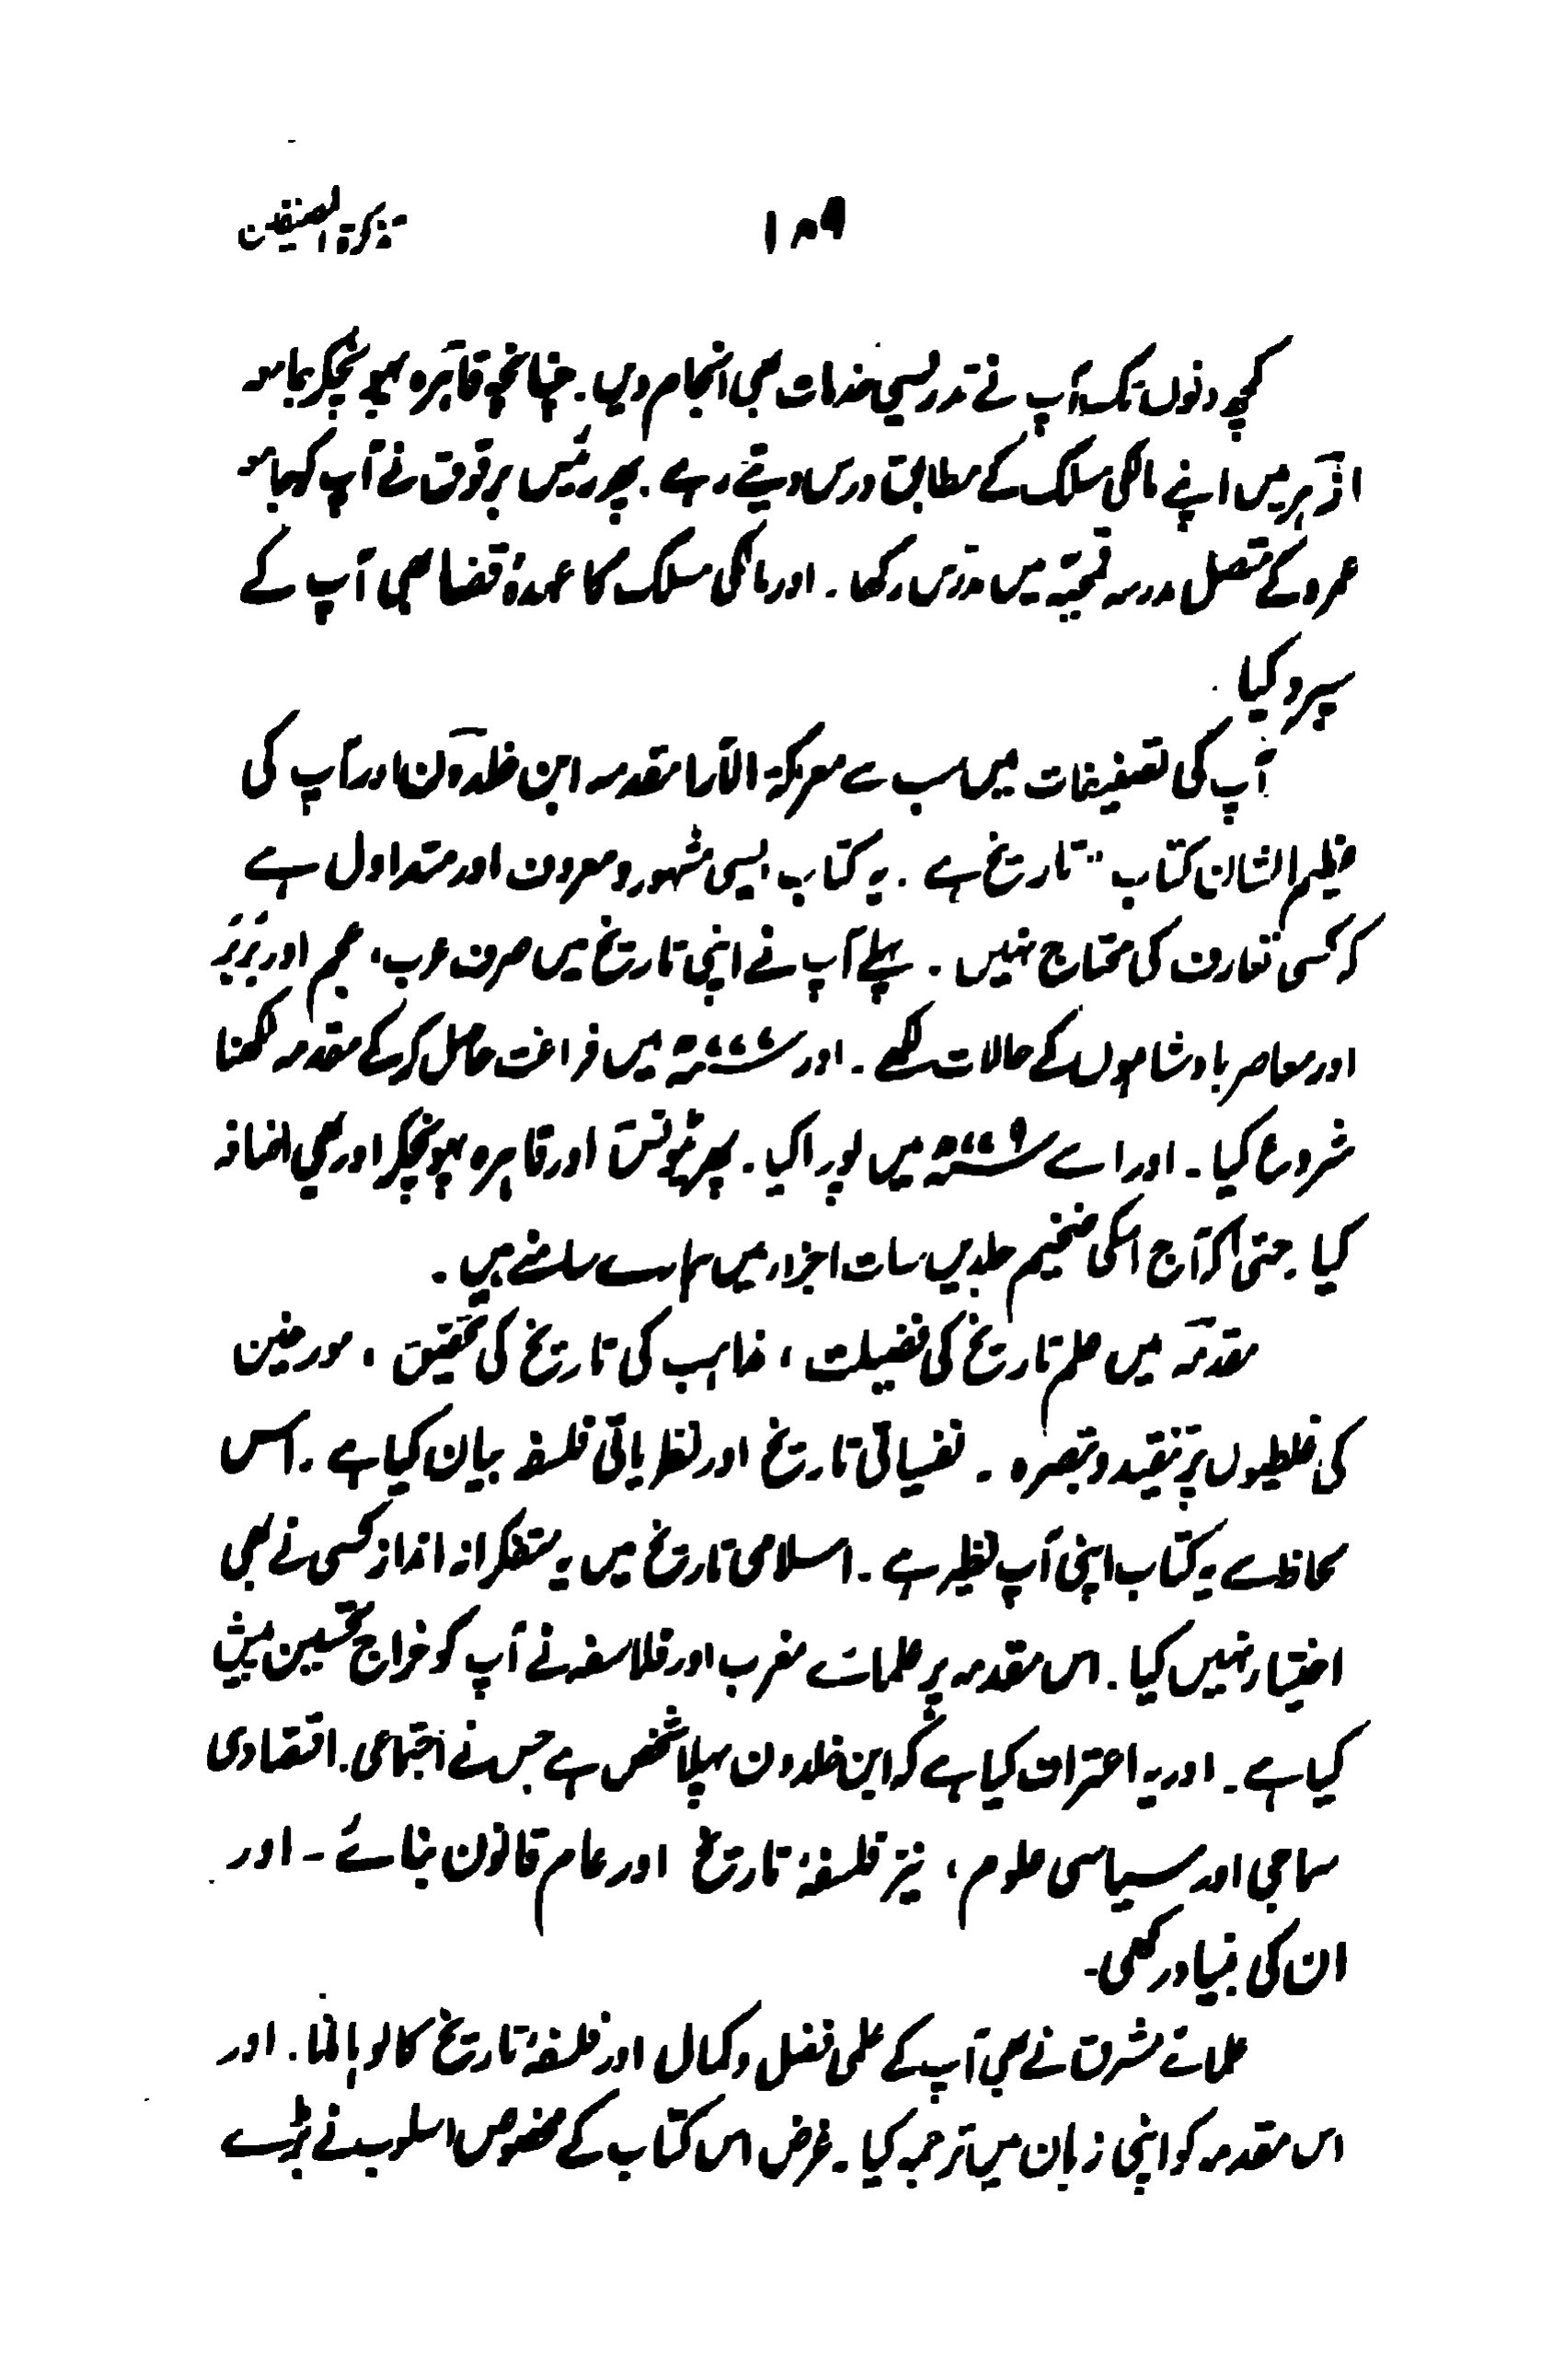 تذکرۃ المصنفین
۱۸۹
کچھ دنوں تک آپ نے تدریسی خدمات بھی انجام دیں. چنانچہ قاہرہ پہونچکر جامعہ
ازہر میں اپنے مالکی مسلک کے مطابق درس دیتے رہے. پھر رئیس برقوق نے آپ کو جامعہ
عمرو کے متصل مدرسہ قمحیّہ میں مدرّس رکھا. اور مالکی مسلک کا عہدۂ قضا بھی آپ کے
سپرد کیا
آپ کی تصنیفات میں سب سے معرکۃ الآرا مقدمہ ابن خلدون اور آپ کی
عظیم الشان کتاب "تاریخ ہے. یہ کتاب ایسی مشہور و معروف اور متداول ہے
کہ کسی تعارف کی محتاج نہیں. پہلے آپ نے اپنی تاریخ میں صرف عرب، عجم اور بَرْبَر
اور معاصر بادشاہوں کے حالات لکھے. اور ۷۷۷ھ میں فراغت حاصل کرکے مقدمہ لکھنا
شروع کیا. اور اسے ۷۷۹ھ میں پورا کیا. پھر ٹیونس اور قاہرہ پہونچکر اور بھی اضافہ
کیا. حتیٰ کہ آج اسکی ضخیم جلدیں سات اجزاء میں ہمارے سامنے ہیں.
مقدمہ میں علم تاریخ کی فضیلت، مذاہب کی تاریخ کی تحقیق، مورخین
کی غلطیوں پر تنقید و تبصرہ. نفسیاتی تاریخ اور نظریاتی فلسفہ بیان کیا ہے. اس
لحاظ سے یہ کتاب اپنی آپ نظیر ہے. اسلامی تاریخ میں یہ متفکرانہ انداز کسی نے بھی
اختیار نہیں کیا. اس مقدمہ پر علمائے مغرب اور فلاسفہ نے آپ کو خراج تحسین پیش
کیا ہے. اور یہ اعتراف کیا ہے کہ ابن خلدون پہلا شخص ہے جس نے اجتماعی. اقتصادی
سماجی اور سیاسی علوم، نیز فلسفۂ تاریخ اور عام قانون بنائے. اور
ان کی بنیاد رکھی.
علمائے مشرق نے بھی آپ کے علمی فضل و کمال اور فلسفۂ تاریخ کا لوہا مانا. اور
اس مقدمہ کو اپنی زبان میں ترجمہ کیا. غرض اس کتاب کے مخصوص اسلوب نے بڑے